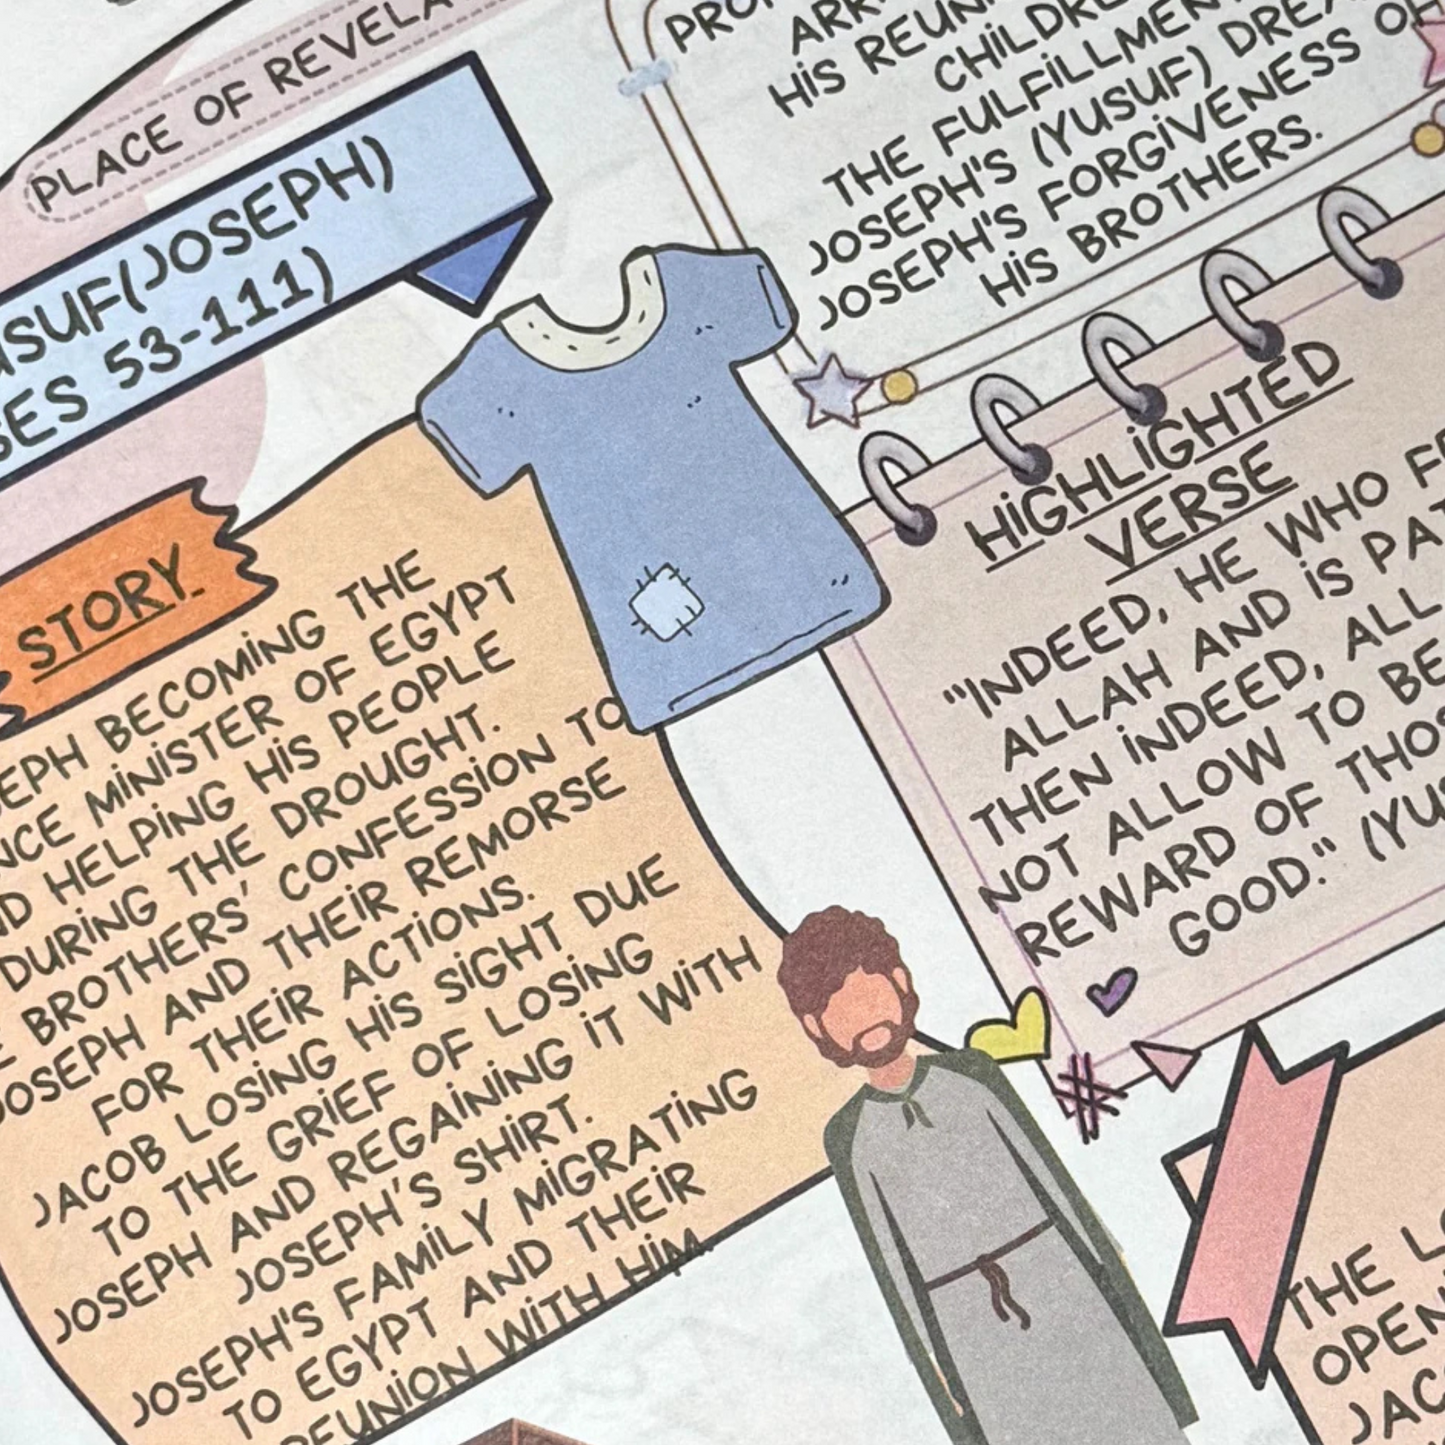 PLACE OF
(JOSEPH)
53-111)
ARR
HIS
CHILDRE
THE FULFILLMENT
JOSEPH'S (YUSUF)
JOSEPH'S FORGIVENESS OF
HIS BROTHERS.
STORY
BECOMING THE
MINISTER OF EGYPT
HELPING HIS PEOPLE
DURING THE DROUGHT.
BROTHERS' CONFESSION TO
JOSEPH AND THEIR REMORSE
FOR THEIR ACTIONS.
JACOB LOSING HIS SIGHT DUE
TO THE GRIEF OF LOSING
JOSEPH AND REGAINING IT WITH
JOSEPH'S SHIRT.
JOSEPH'S FAMILY MIGRATING
TO EGYPT AND THEIR
REUNION WITH HIM.
HIGHLIGHTED
VERSE
"INDEED, HE WHO
ALLAH AND IS
THEN INDEED, ALL
NOT ALLOW TO BE
REWARD OF
GOOD." (YUS
THE
OPEN
JAC